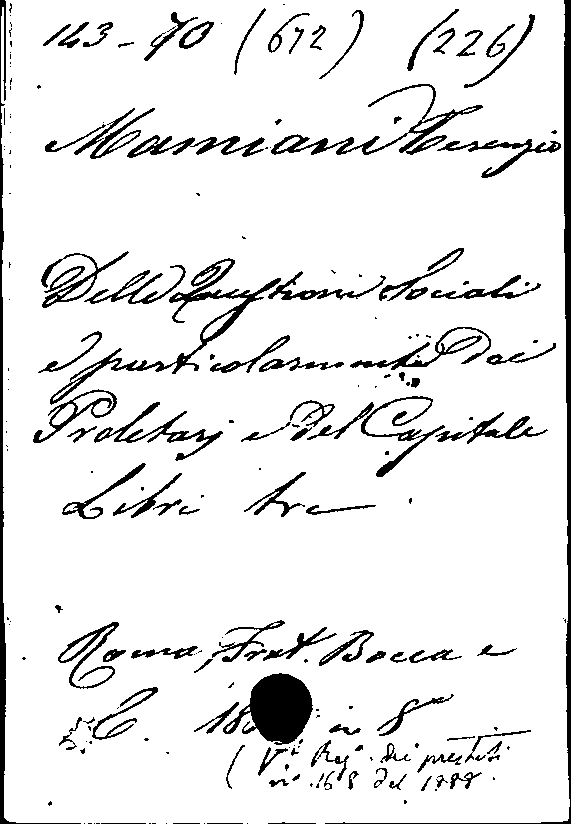 143-70 (672) (226)
Mamiani Terenzio
Delle Questioni Sociali
e particolarmente Dei
Proletarj e Del Capitale
Libri tre.
Roma, Frat. Bocca e
C. 18 in 8°
(Vi Reg. dei prestiti
n° 168 del 1888.